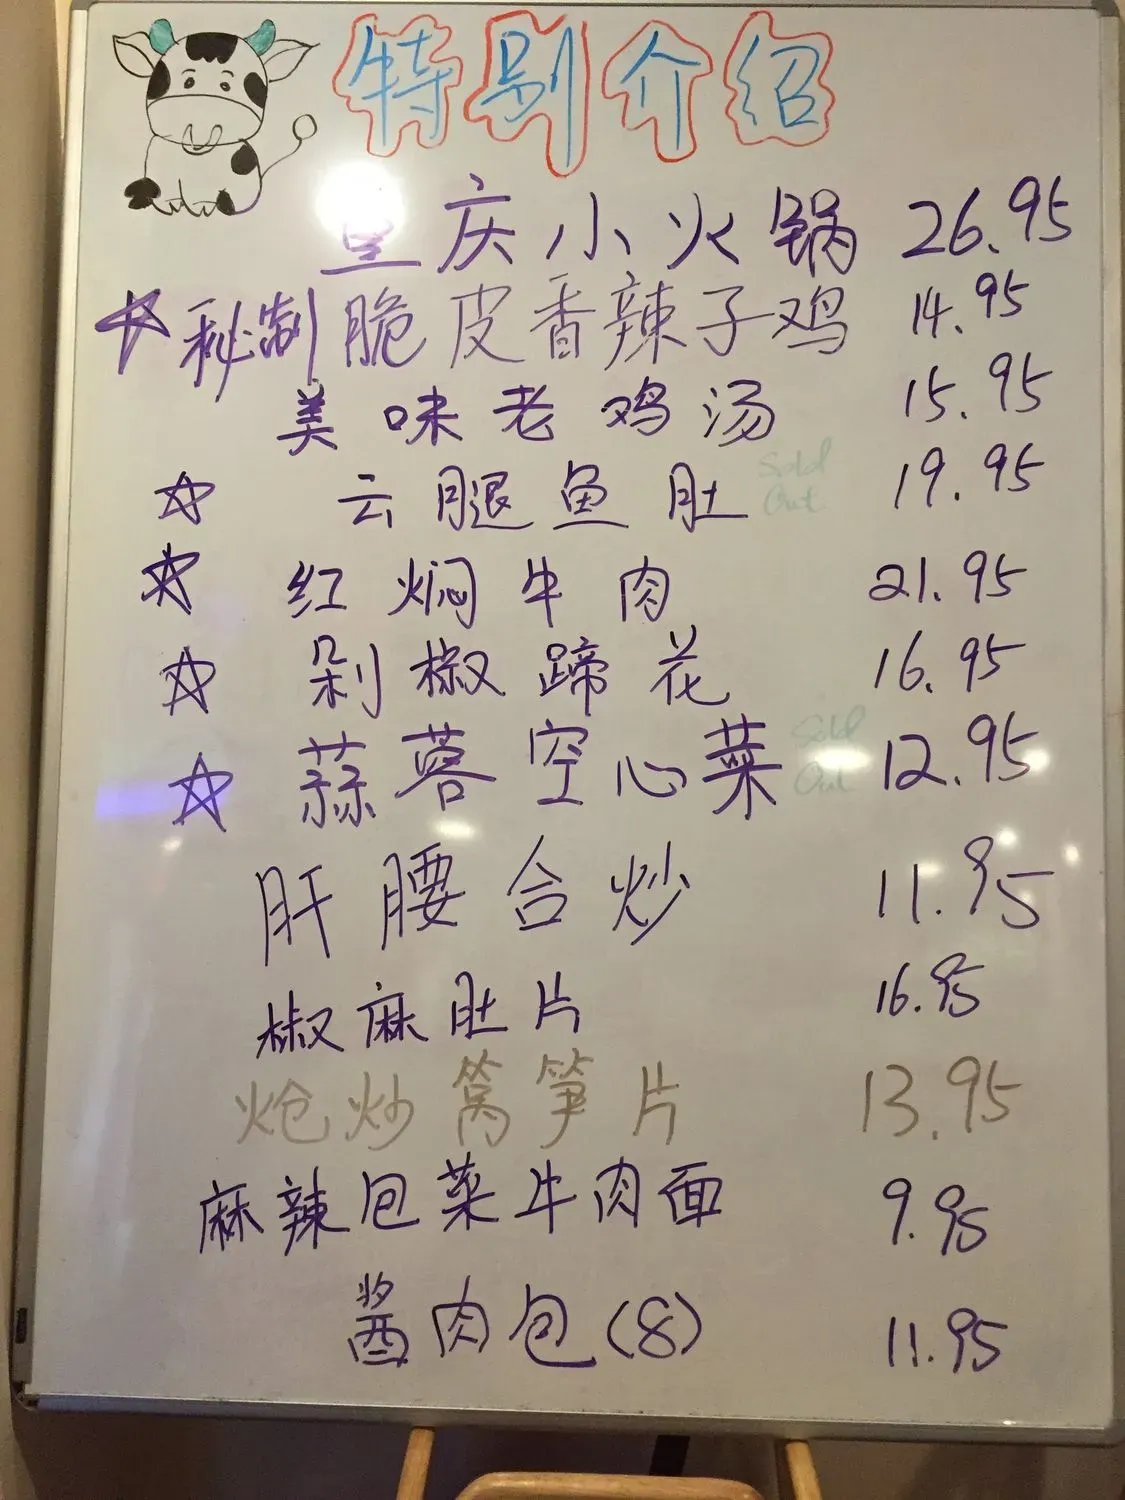 特别介绍
重庆小火锅 26.95
秘制脆皮香辣子鸡 14.95
美味老鸡汤 15.95
云腿鱼肚 Sold Out 19.95
红焖牛肉 21.95
剁椒蹄花 16.95
蒜蓉空心菜 Sold Out 12.95
肝腰合炒 11.95
椒麻肚片 16.95
炝炒莴笋片 13.95
麻辣包菜牛肉面 9.95
酱肉包(8) 11.95